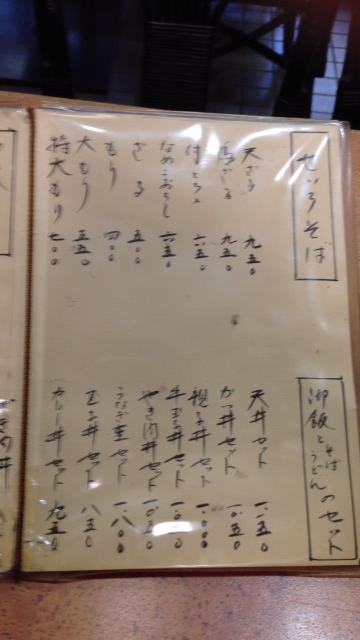 せいろそば
天ざる 九五〇
鳥ざる 九五〇
付とろろ 六五〇
なめこおろし 六五〇
ざる 五〇〇
もり 四〇〇
大もり 五五〇
特大もり 七〇〇
御飯とそばうどんのセット
天丼セット 一、一五〇
カツ丼セット 一、〇五〇
親子丼セット 一、〇〇〇
牛玉丼セット 一、〇〇〇
やき肉丼セット 一、〇五〇
うな重セット 一、八〇〇
玉子丼セット 八五〇
カレー丼セット 九五〇